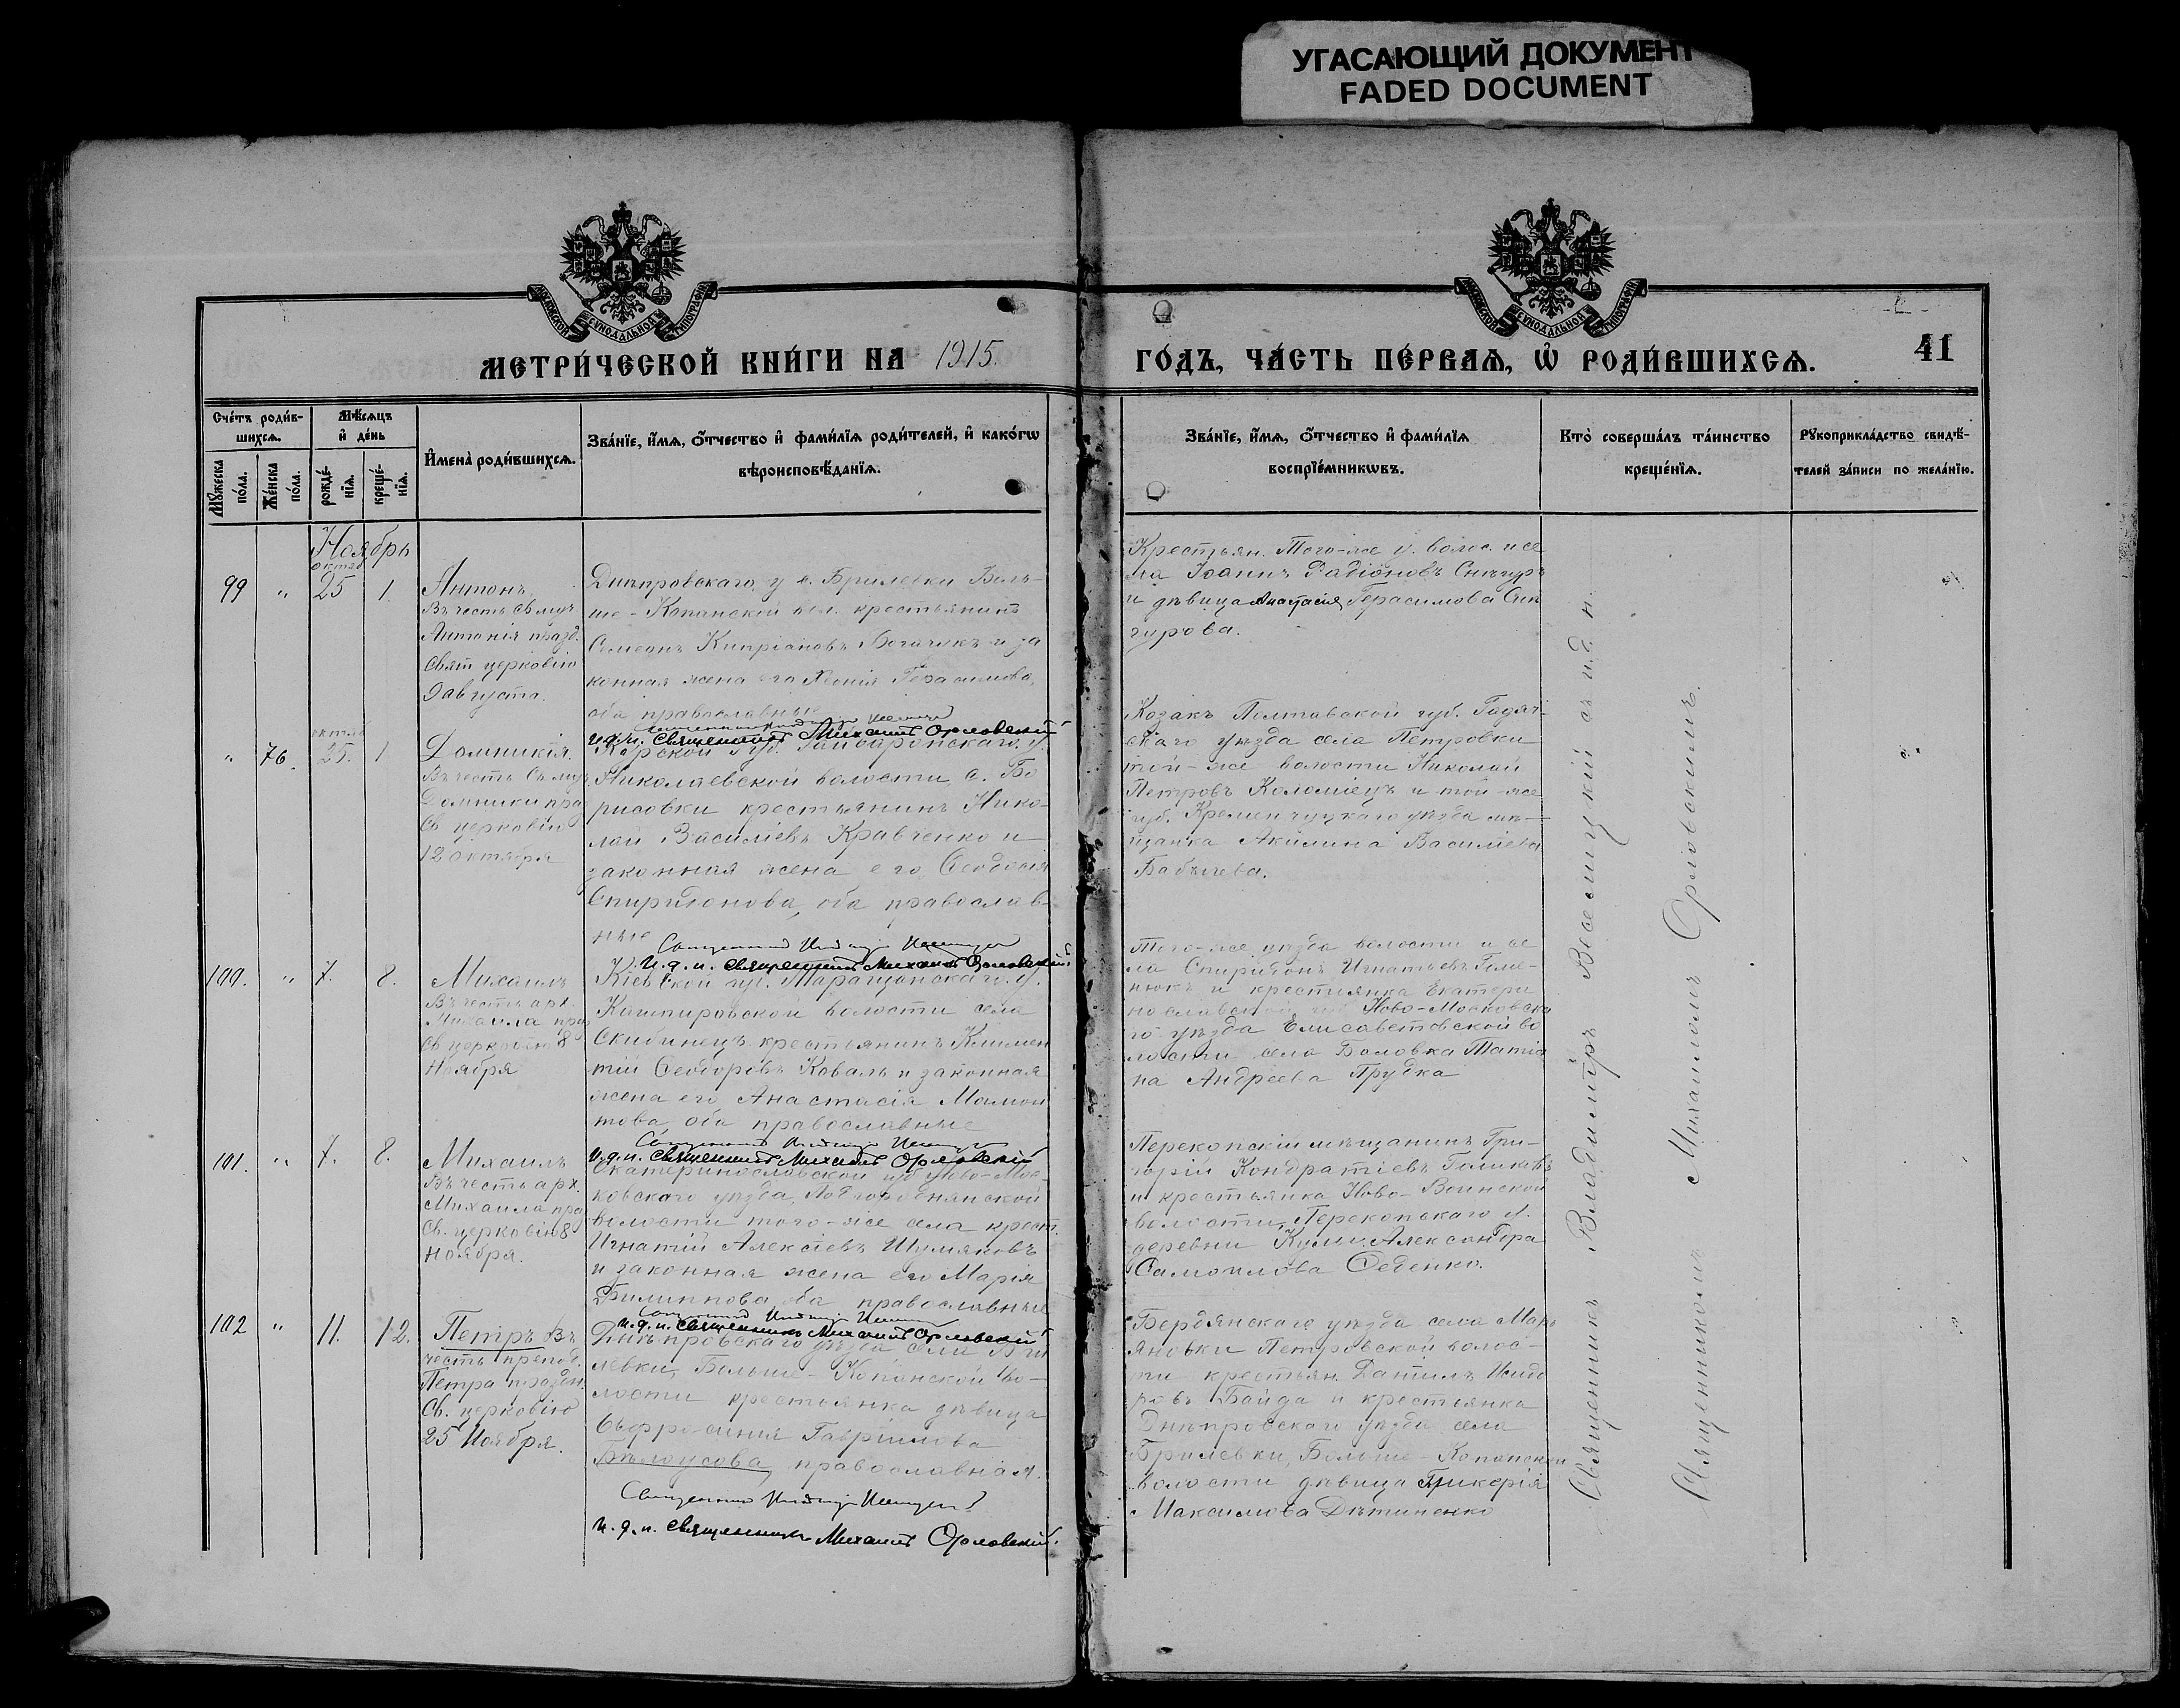 УГАСАЮЩИЙ ДОКУМЕНТ
FADED DOCUMENT
МЕТРИ́ЧЕСКОЙ КНИ́ГИ НА 1915.
ГО́ДЪ, ЧА́СТЬ ПЕ́РВАѦ, Ѡ҆ РОДИ́ВШИХСѦ.
41
Сче́тъ роди́в-
шихсѧ.
Мꙋ́жеска по́ла.
Же́нска по́ла.
Мѣ́сѧцъ
и҆ де́нь
рожде́-
нїѧ.
креще́-
нїѧ.
И҆мена̀ роди́вшихсѧ.
Зва́нїе, и҆́мѧ, ѻ҆́тчество и҆ фами́лїѧ роди́телей, и҆ како́гѡ
вѣроисповѣ́данїѧ.
Зва́нїе, и҆́мѧ, ѻ҆́тчество и҆ фами́лїѧ
воспрїе́мникѡвъ.
Кто̀ соверша́лъ та́инство
креще́нїѧ.
Рꙋкоприкла́дство свидѣ́-
телей за́писи по жела́нїю.
Ноябрь
октяб
99 " 25 1.
Антонъ
Въ честь Св муч
Антонія празд.
Свят церковію
9 августа.
Днѣпровскаго у с. Брилевки Боль-
ше-Копанской вол. крестьянинъ
Семеонъ Кипріановъ и за
конная жена его Ксенія Герасимова,
оба православные
и.д.п. Священникъ Михаилъ Орловскій
Крестьян. Того-же у. волос. и се
ла Іоаннъ Радіоновъ Снѣгуръ
и дѣвица Анастасія Герасимова Снѣ
гурова.
" 76. 25. 1
Домникія.
Въ честь Св муч
Домники пра
Св церковію
12 октября
Николаевской волости, с. Бо
рисовки крестьянинъ Нико-
лай Василіевъ Кравченко и
законная жена его Ѳеодосія
Спиридонова, оба православ-
ные
И.д.п. Священникъ Михаилъ Орловскій
Козакъ Полтавской губ. Гадяч-
скаго уѣзда села Петровки
той-же волости Николай
Петровъ Коломіецъ и той-же
губ. Кременчугскаго уѣзда мѣ-
щанка Акилина Василіева
Бабичева.
100. " 7. 8.
Михаилъ
Въ честь арх.
Михаила пра
Св церковію 8
Ноября
Кіевской губ. Таращанскаго у.
волости села
Скибинецъ крестьянинъ Климен
тій Ѳеодоровъ Коваль и законная
жена его Анастасія Мамон
това, оба православные
и.д.п. Священникъ Михаилъ Орловскій
Того-же уѣзда волости и се
ла Спиридонъ Игнатьевъ
нюкъ и крестьянка Екатери
нославской губ Ново-Московска
го уѣзда Елисаветовской во
лости села Татіа
на Андреева Прудка
101. " 7. 8.
Михаилъ
Въ честь арх.
Михаила пра
Св. церковію 8
Ноября.
Екатеринославской губ Ново-Мос-
ковскаго уѣзда, Подгороднянской
волости того-же села крест.
Игнатій Алексіевъ Шумаковъ
и законная жена его Марія
Филиппова, оба православные
и.д.п. Священникъ Михаилъ Орловскій
Перекопскій мѣщанинъ Гри-
горій Кондратіевъ Голиковъ
и крестьянка Ново-Воинской
волости, Перекопскаго у.
деревни Александра
Самоилова Ѳеденко.
102 " 11. 12.
Петръ Въ
честь препод.
Петра праздн.
Св. церковію
25 Ноября.
Днѣпровскаго уѣзда села Бри
левки, Больше-Копанской во-
лости крестьянка дѣвица
Евфросинія Гавріилова
Бѣлоусова, православная.
и.д.п. Священникъ Михаилъ Орловскій.
Бердянскаго уѣзда села Марь
яновки Петровской волос-
ти крестьян. Даніилъ Исидо
ровъ Байда и крестьянка
Днѣпровскаго уѣзда села
Брилевки, Больше-Копанской
волости дѣвица Гликерія
Максимова Дѣтиненко
Священникъ Владиміръ Веселицкій съ и.д. п.
Священникомъ Михаиломъ Орловскимъ.